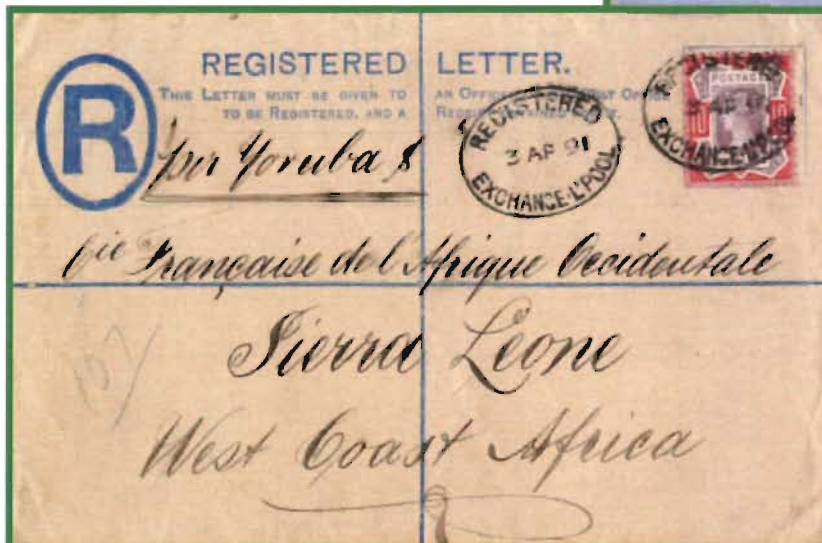 REGISTERED LETTER.
THIS LETTER MUST BE GIVEN TO AN OFFICER OF THE POST OFFICE
TO BE REGISTERED, AND A RECEIPT OBTAINED FOR IT.
R
per Yoruba S
REGISTERED
3 AP 91
EXCHANGE·L'POOL
REGISTERED
EXCHANGE·L'POOL
POSTAGE
Cie Française de l'Afrique Occidentale
Sierra Leone
West Coast Africa